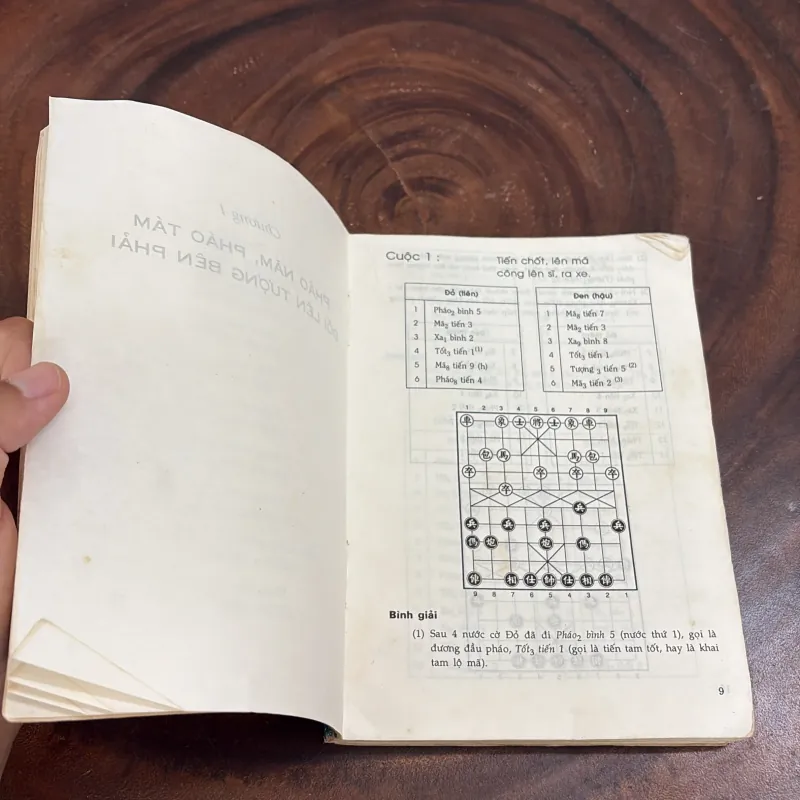 Chương 1
PHÁO NĂM, PHÁO TÁM
ĐỐI LÊN TƯỢNG BÊN PHẢI
Cuộc 1 :
Tiến chốt, lên mã
công lên sĩ, ra xe.
Đỏ (tiên)
1 Pháo₂ bình 5
2 Mã₂ tiến 3
3 Xa₁ bình 2
4 Tốt₃ tiến 1 (1)
5 Mã₈ tiến 9 (h)
6 Pháo₈ tiến 4
Đen (hậu)
1 Mã₈ tiến 7
2 Mã₂ tiến 3
3 Xa₉ bình 8
4 Tốt₃ tiến 1
5 Tượng ₃ tiến 5 (2)
6 Mã₃ tiến 2 (3)
1 2 3 4 5 6 7 8 9
車 象 士 將 士 象 車
包 馬 馬 包
卒 卒 卒 卒
卒
兵
兵 兵 兵 兵
傌 炮 炮 傌
俥 相 仕 帥 仕 相 俥
9 8 7 6 5 4 3 2 1
Bình giải
(1) Sau 4 nước cờ Đỏ đã đi Pháo₂ bình 5 (nước thứ 1), gọi là
đương đầu pháo, Tốt₃ tiến 1 (gọi là tiến tam tốt, hay là khai
tam lộ mã).
9